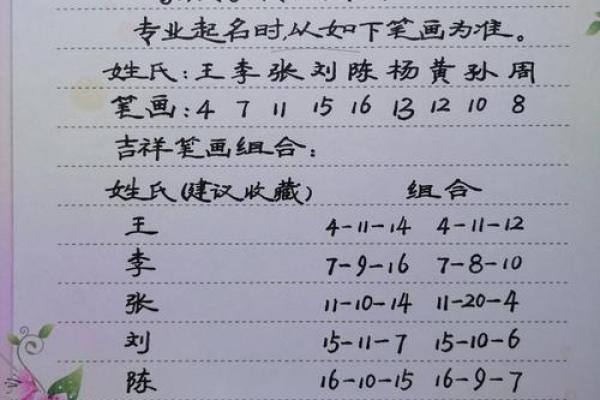 专业起名时,从如下笔画为准。
姓氏:王李张刘陈杨黄孙周
笔画:4 7 11 15 16 13 12 10 8
吉祥笔画组合:
姓氏(建议收藏) 组合
王 4-11-14 4-11-12
李 7-9-16 7-8-10
张 11-10-14 11-20-4
刘 15-11-7 15-10-6
陈 16-10-15 16-9-7